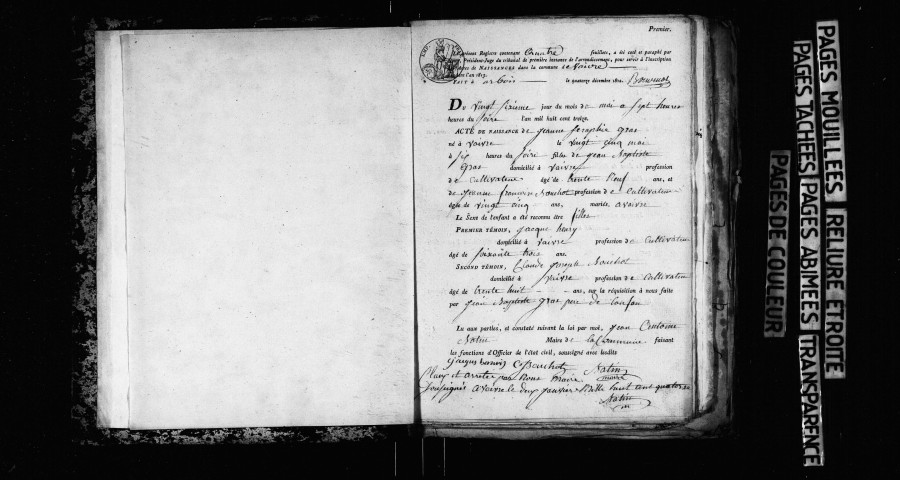 Premier.
Registre contenant quatre feuillets, a été coté et paraphé par
Président-Juge du tribunal de première instance de l'arrondissement, pour servir à l'inscription
de NAISSANCES dans la commune de vaivre
l'an 1813.
FAIT à arbois le quatorze décembre 1812.
DU vingt sixieme jour du mois de mai a sept heures
heures du soire l'an mil huit cent treize.
ACTE DE NAISSANCE de jeanne seraphie gras
né à vaivre le vingt cinq mai
à six heures du soire fille de jean baptiste
gras domicilié à vaivre profession
de cultivateur âgé de trente neuf ans, et
de jeanne françoise profession de cultivateur
âgée de vingt cinq ans, mariés, a vaivre
Le Sexe de l'enfant a été reconnu être fille
PREMIER TÉMOIN, jacque henry
domicilié à vaivre profession de cultivateur
âgé de soixante trois ans.
SECOND TÉMOIN, Claude joseph
domicilié à vaivre profession de cultivateur
âgé de trente huit ans, sur la réquisition à nous faite
par jean Baptiste gras pere de
Lu aux parties, et constaté suivant la loi par moi, jean
Maire de la Commune faisant
les fonctions d'Officier de l'état civil, soussigné avec
maire
Clos et arrêté par Nous maire
soussigné a vaivre le deux janvier mille huit cent quatorze
PAGES MOUILLEES RELIURE ETROITE
PAGES TACHEES PAGES ABIMEES TRANSPARENCE
PAGES DE COULEUR